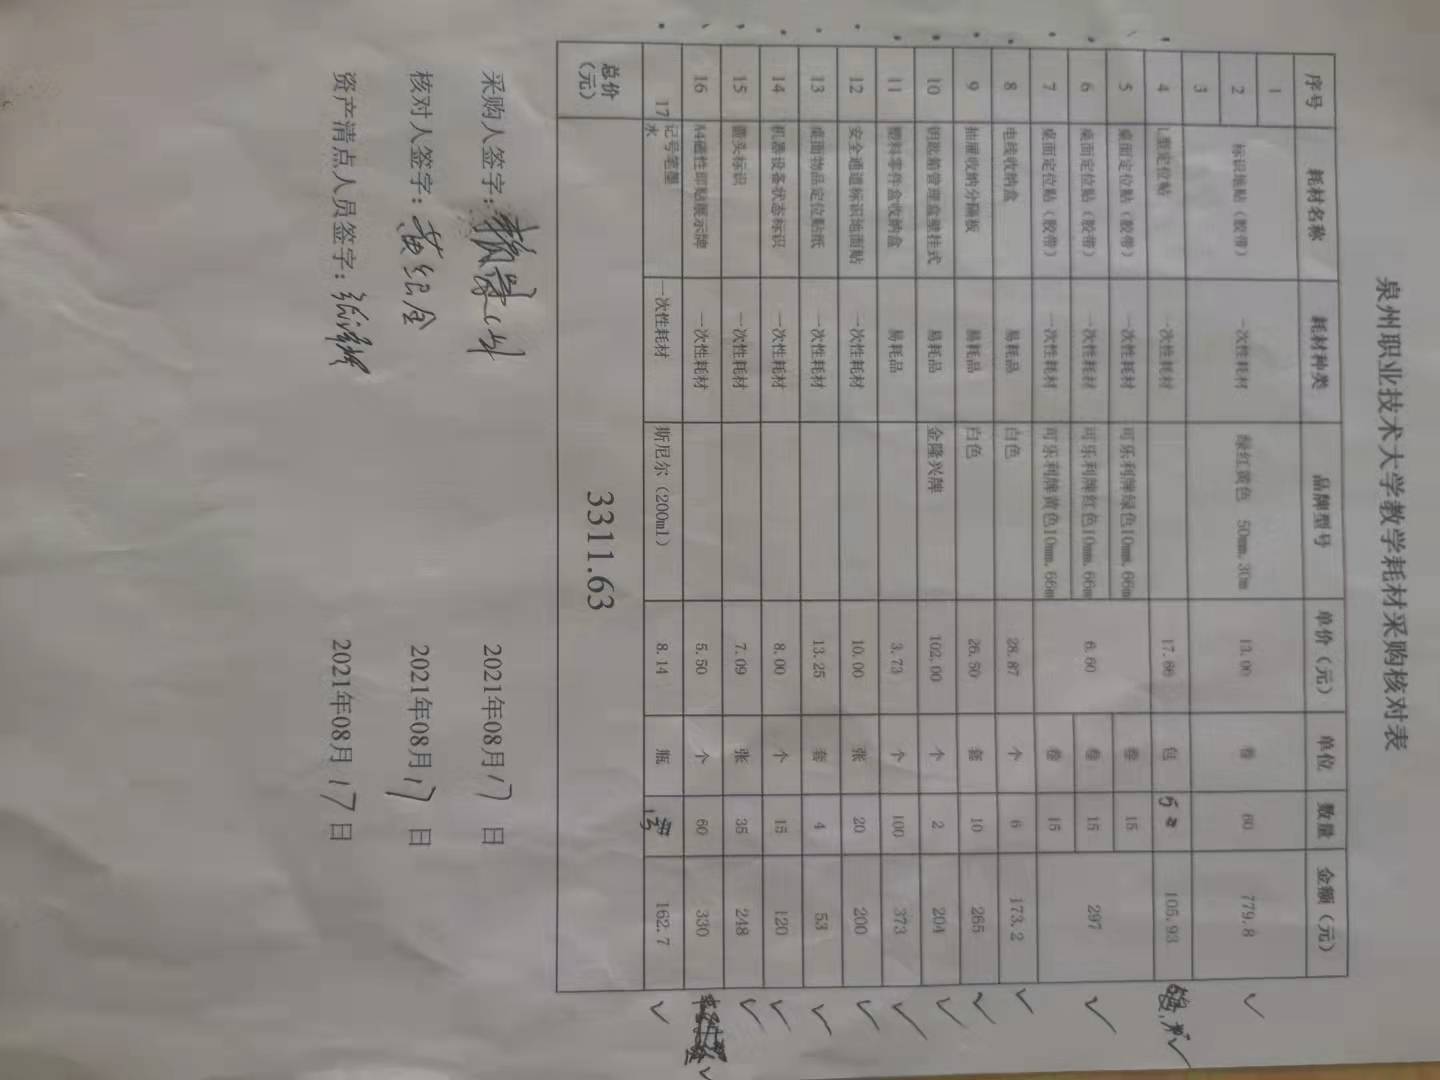 泉州职业技术大学教学耗材采购核对表
序号 耗材名称 耗材种类 品牌型号 单价（元） 单位 数量 金额（元）
1
2 标识地贴（胶带） 一次性耗材 绿红黄色 50mm.30m 13.00 卷 60 779.8
3
4 L型定位贴 一次性耗材 17.66 包 5 105.93
5 桌面定位贴（胶带） 一次性耗材 可乐利牌绿色10mm.66m 卷 15
6 桌面定位贴（胶带） 一次性耗材 可乐利牌红色10mm.66m 6.60 卷 15 297
7 桌面定位贴（胶带） 一次性耗材 可乐利牌黄色10mm.66m 卷 15
8 电线收纳盒 易耗品 白色 28.87 个 6 173.2
9 抽屉收纳分隔板 易耗品 白色 26.50 套 10 265
10 钥匙箱管理盒壁挂式 易耗品 金隆兴牌 102.00 个 2 204
11 塑料零件盒收纳盒 易耗品 3.73 个 100 373
12 安全通道标识地面贴 一次性耗材 10.00 张 20 200
13 桌面物品定位贴纸 一次性耗材 13.25 套 4 53
14 机器设备状态标识 一次性耗材 8.00 个 15 120
15 置头标识 一次性耗材 7.09 张 35 248
16 A4磁性即贴展示牌 一次性耗材 5.50 个 60 330
17 记号笔墨水 一次性耗材 斯尼尔（200ml） 8.14 瓶 162.7
总价（元） 3311.63
采购人签字： 2021年08月17日
核对人签字： 2021年08月17日
资产清点人员签字： 2021年08月17日